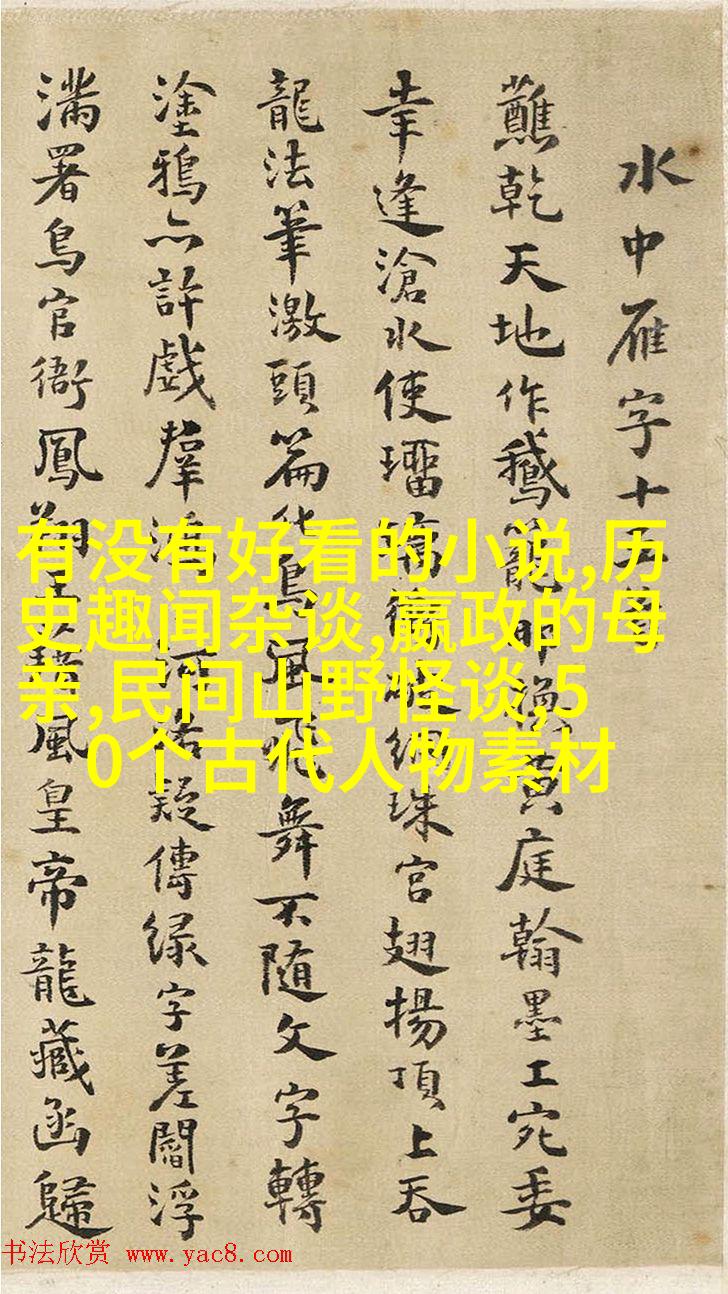 水中雁字十
蘸乾天地作鵝籠黄庭翰墨工宛委
幸逢滄水使珠宫翅揚頂上吞
龍法筆激頭篇鳥風飛舞不随文字轉
塗鴉亦許戲羣鴻河洛疑傳緑字差閻浮
滿署鳥官衙鳳翔風皇帝龍藏函歸
有没有好看的小说,历
史趣闻杂谈,嬴政的母
亲,民间山野怪谈,5
0个古代人物素材
书法欣赏 www.yac8.com